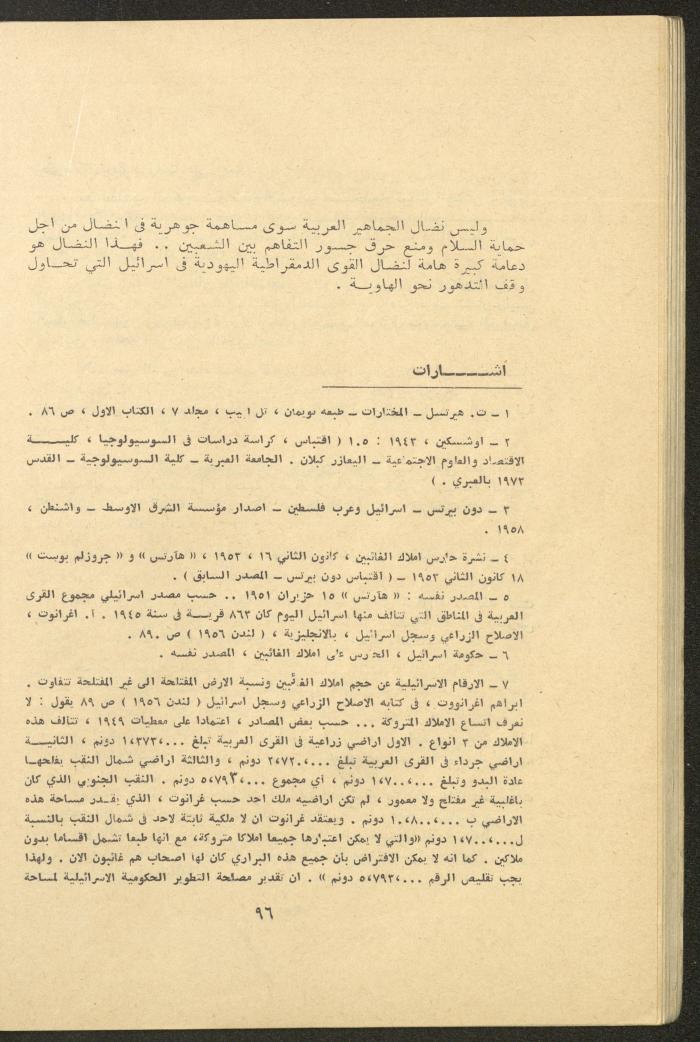 وليس نضال الجماهير العربية سوى مساهمة جوهرية في النضال من اجل
حماية السلام ومنع حرق جسور التفاهم بين الشعبين .. فهذا النضال هو
دعامة كبيرة هامة لنضال القوى الدمقراطية اليهودية في اسرائيل التي تحاول
وقف التدهور نحو الهاوية .
اشارات
١ ــ ت. هيرتسل ــ المختارات ــ طبعه نويمان ، تل ابيب ، مجلد ٧ ، الكتاب الاول ، ص ٨٦ .
٢ ــ اوشسكين ، ١٩٤٣ : ١٠٥ ( اقتباس ، كراسة دراسات في السوسيولوجيا ، كلية
الاقتصاد والعلوم الاجتماعية ــ اليعازر كبلان . الجامعة العبرية ــ كلية السوسيولوجية ــ القدس
١٩٧٣ بالعبري . )
٣ ــ دون بيرتس ــ اسرائيل وعرب فلسطين ــ اصدار مؤسسة الشرق الاوسط ــ واشنطن ،
١٩٥٨ .
٤ ــ نشرة حارس املاك الغائبين ، كانون الثاني ١٦ ، ١٩٥٣ ، « هآرتس » و « جروزلم بوست »
١٨ كانون الثاني ١٩٥٣ ــ ( اقتباس دون بيرتس ــ المصدر السابق ) .
٥ ــ المصدر نفسه : « هآرتس » ١٥ حزيران ١٩٥١ .. حسب مصدر اسرائيلي مجموع القرى
العربية في المناطق التي تتألف منها اسرائيل اليوم كان ٨٦٣ قرية في سنة ١٩٤٥ . أ. اغرانوت ،
الاصلاح الزراعي وسجل اسرائيل ، بالانجليزية ، ( لندن ١٩٥٦ ) ص ٨٩٠ .
٦ ــ حكومة اسرائيل ، الحارس على املاك الغائبين ، المصدر نفسه .
٧ ــ الارقام الاسرائيلية عن حجم املاك الغائبين ونسبة الارض المفتلحة الى غير المفتلحة تتفاوت .
ابراهم اغرانووت ، في كتابه الاصلاح الزراعي وسجل اسرائيل ( لندن ١٩٥٦ ) ص ٨٩ يقول : لا
نعرف اتساع الاملاك المتروكة ... حسب بعض المصادر ، اعتمادا على معطيات ١٩٤٩ ، تتألف هذه
الاملاك من ٣ انواع . الاول اراضي زراعية في القرى العربية تبلغ ١،٣٧٣،٠٠٠ دونم ، الثانية
اراضي جرداء في القرى العربية تبلغ ٢،٧٢٠،٠٠٠ دونم ، والثالثة اراضي شمال النقب يفلحها
عادة البدو وتبلغ ١،٧٠٠،٠٠٠ دونم ، أي مجموع ٥،٧٩٣،٠٠٠ دونم . النقب الجنوبي الذي كان
باغلبية غير مفتلح ولا معمور ، لم تكن اراضيه ملك احد حسب غرانوت ، الذي يقدر مساحة هذه
الاراضي ب ١٠،٨٠٠،٠٠٠ دونم . ويعتقد غرانوت ان لا ملكية ثابتة لاحد في شمال النقب بالنسبة
ل١،٧٠٠،٠٠٠ دونم «والتي لا يمكن اعتبارها جميعا املاكا متروكة، مع انها طبعا تشمل اقساما بدون
ملاكين . كما انه لا يمكن الافتراض بان جميع هذه البراري كان لها اصحاب هم غائبون الان . ولهذا
يجب تقليص الرقم ٥،٧٩٣،٠٠٠ دونم » . ان تقدير مصلحة التطوير الحكومية الاسرائيلية لمساحة
٩٦